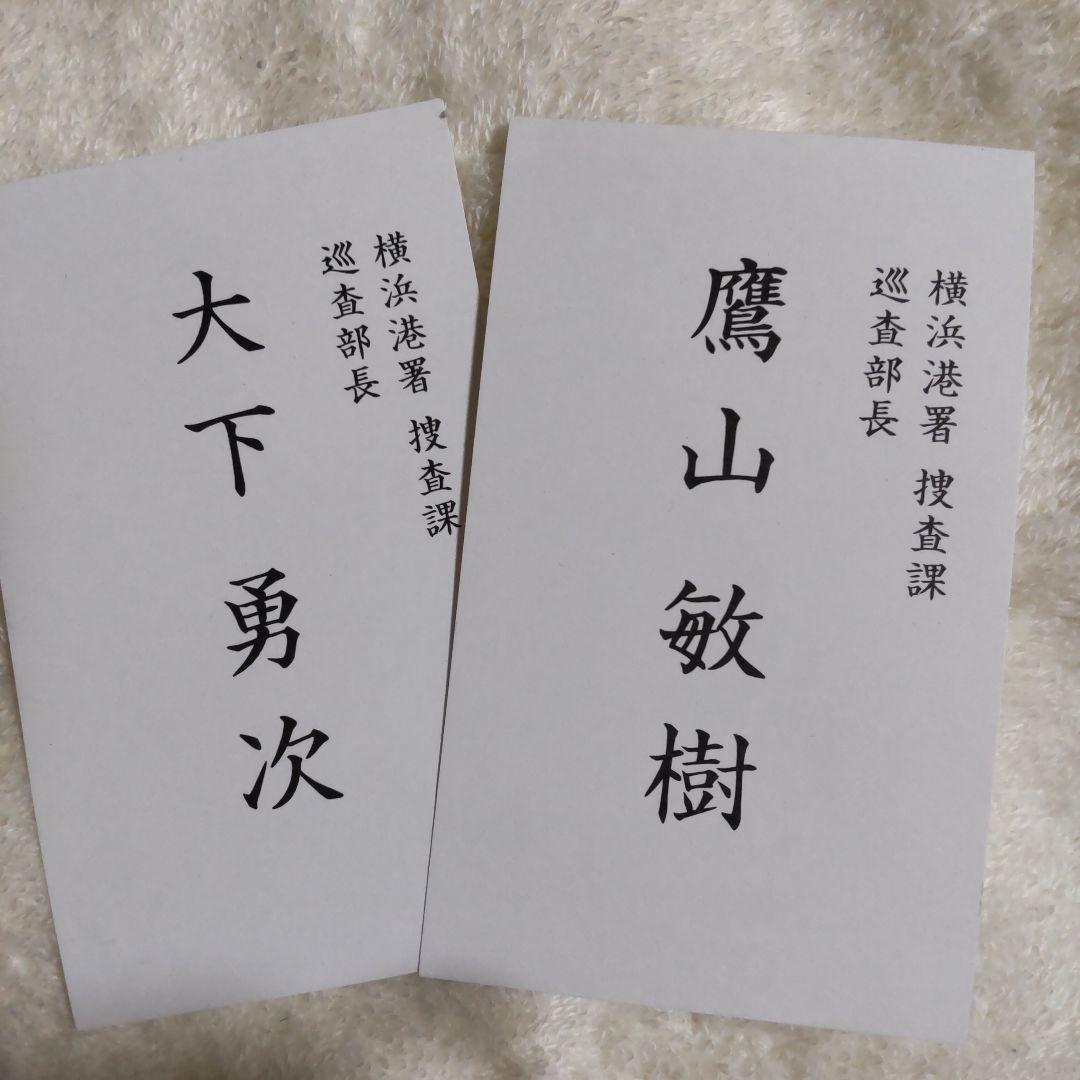 横浜港署 捜査課
巡査部長
大下勇次
横浜港署 捜査課
巡査部長
鷹山敏樹